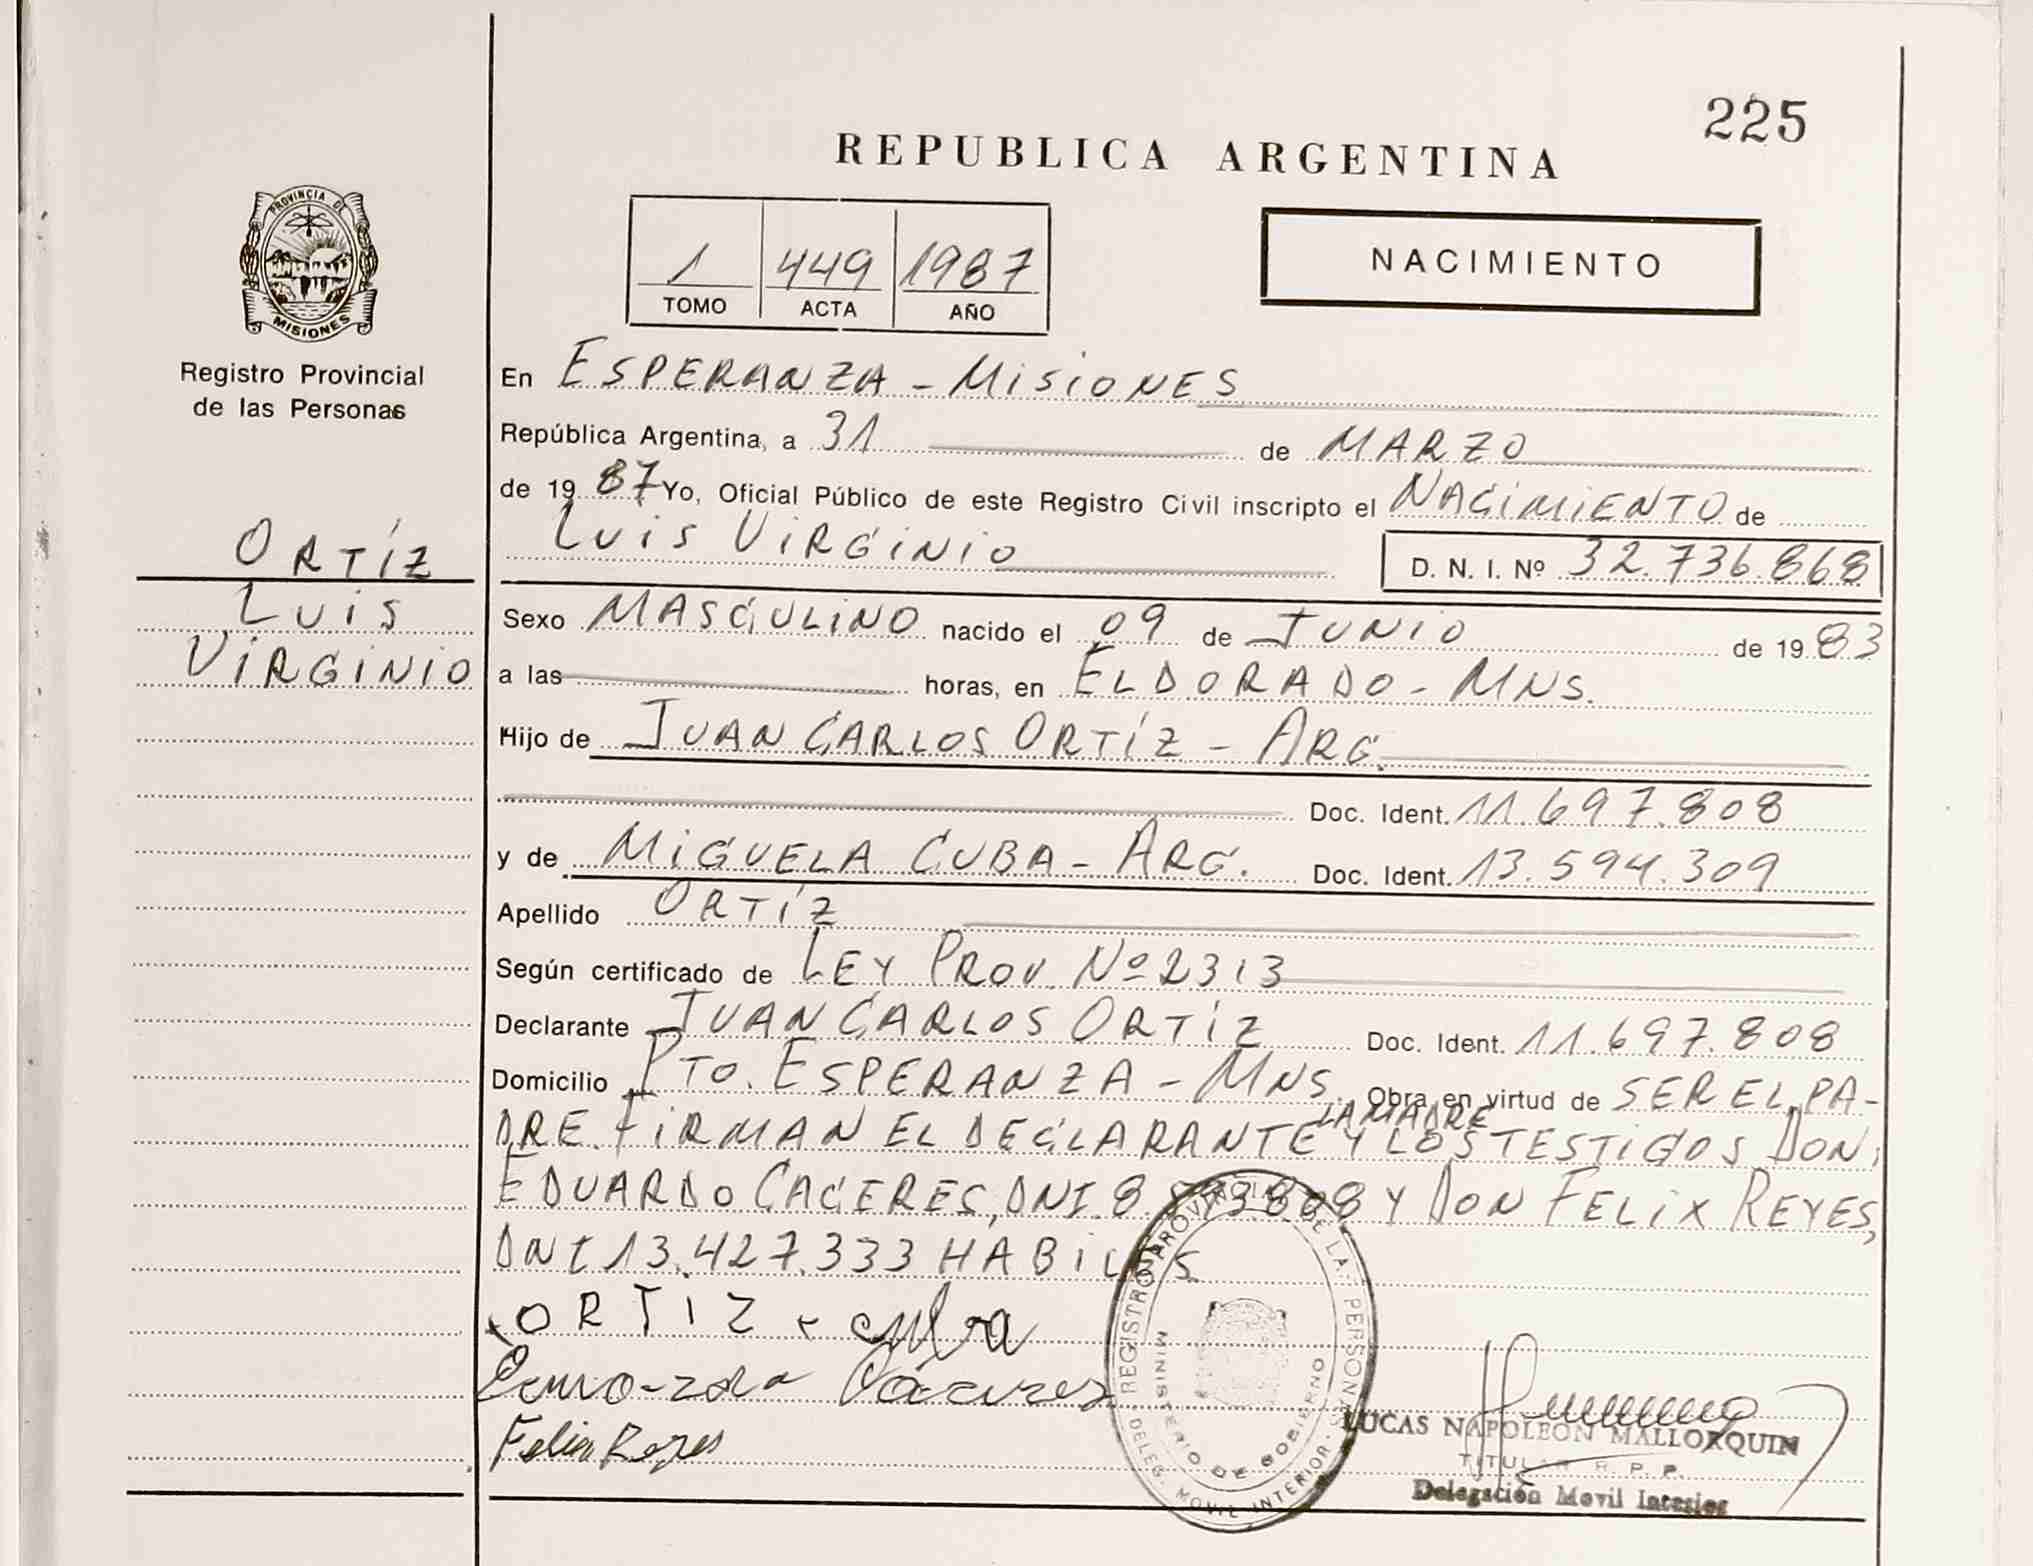 225
REPUBLICA ARGENTINA
PROVINCIA DE
MISIONES
Registro Provincial
de las Personas
1 449 1987
TOMO ACTA AÑO
NACIMIENTO
En ESPERANZA - MISIONES
República Argentina, a 31 de MARZO
de 1987 Yo, Oficial Público de este Registro Civil inscripto el NACIMIENTO de
LUIS VIRGINIO D. N. I. Nº 32.736.868
ORTÍZ
LUIS
VIRGINIO
Sexo MASCULINO nacido el 09 de JUNIO de 1983
a las horas, en ELDORADO - MNS.
Hijo de JUAN CARLOS ORTÍZ - ARG.
Doc. Ident. 11.697.808
y de MIGUELA CUBA - ARG. Doc. Ident. 13.594.309
Apellido ORTÍZ
Según certificado de LEY PROV. Nº 2313
Declarante JUAN CARLOS ORTÍZ Doc. Ident. 11.697.808
Domicilio PTO. ESPERANZA - MNS. Obra en virtud de SER EL PA-
DRE. FIRMAN EL DECLARANTE LA MADRE Y LOS TESTIGOS DON
EDUARDO CACERES, DNI. 8 808 Y DON FELIX REYES,
DNI 13.427.333 HABILES
ORTIZ cuba
Caceres
Felix Reyes
REGISTRO PROVINCIAL DE LAS PERSONAS
MINISTERIO DE GOBIERNO
DELEG. MOVIL INTERIOR
LUCAS NAPOLEON MALLORQUIN
TITULAR R. P. P.
Delegación Movil Interior